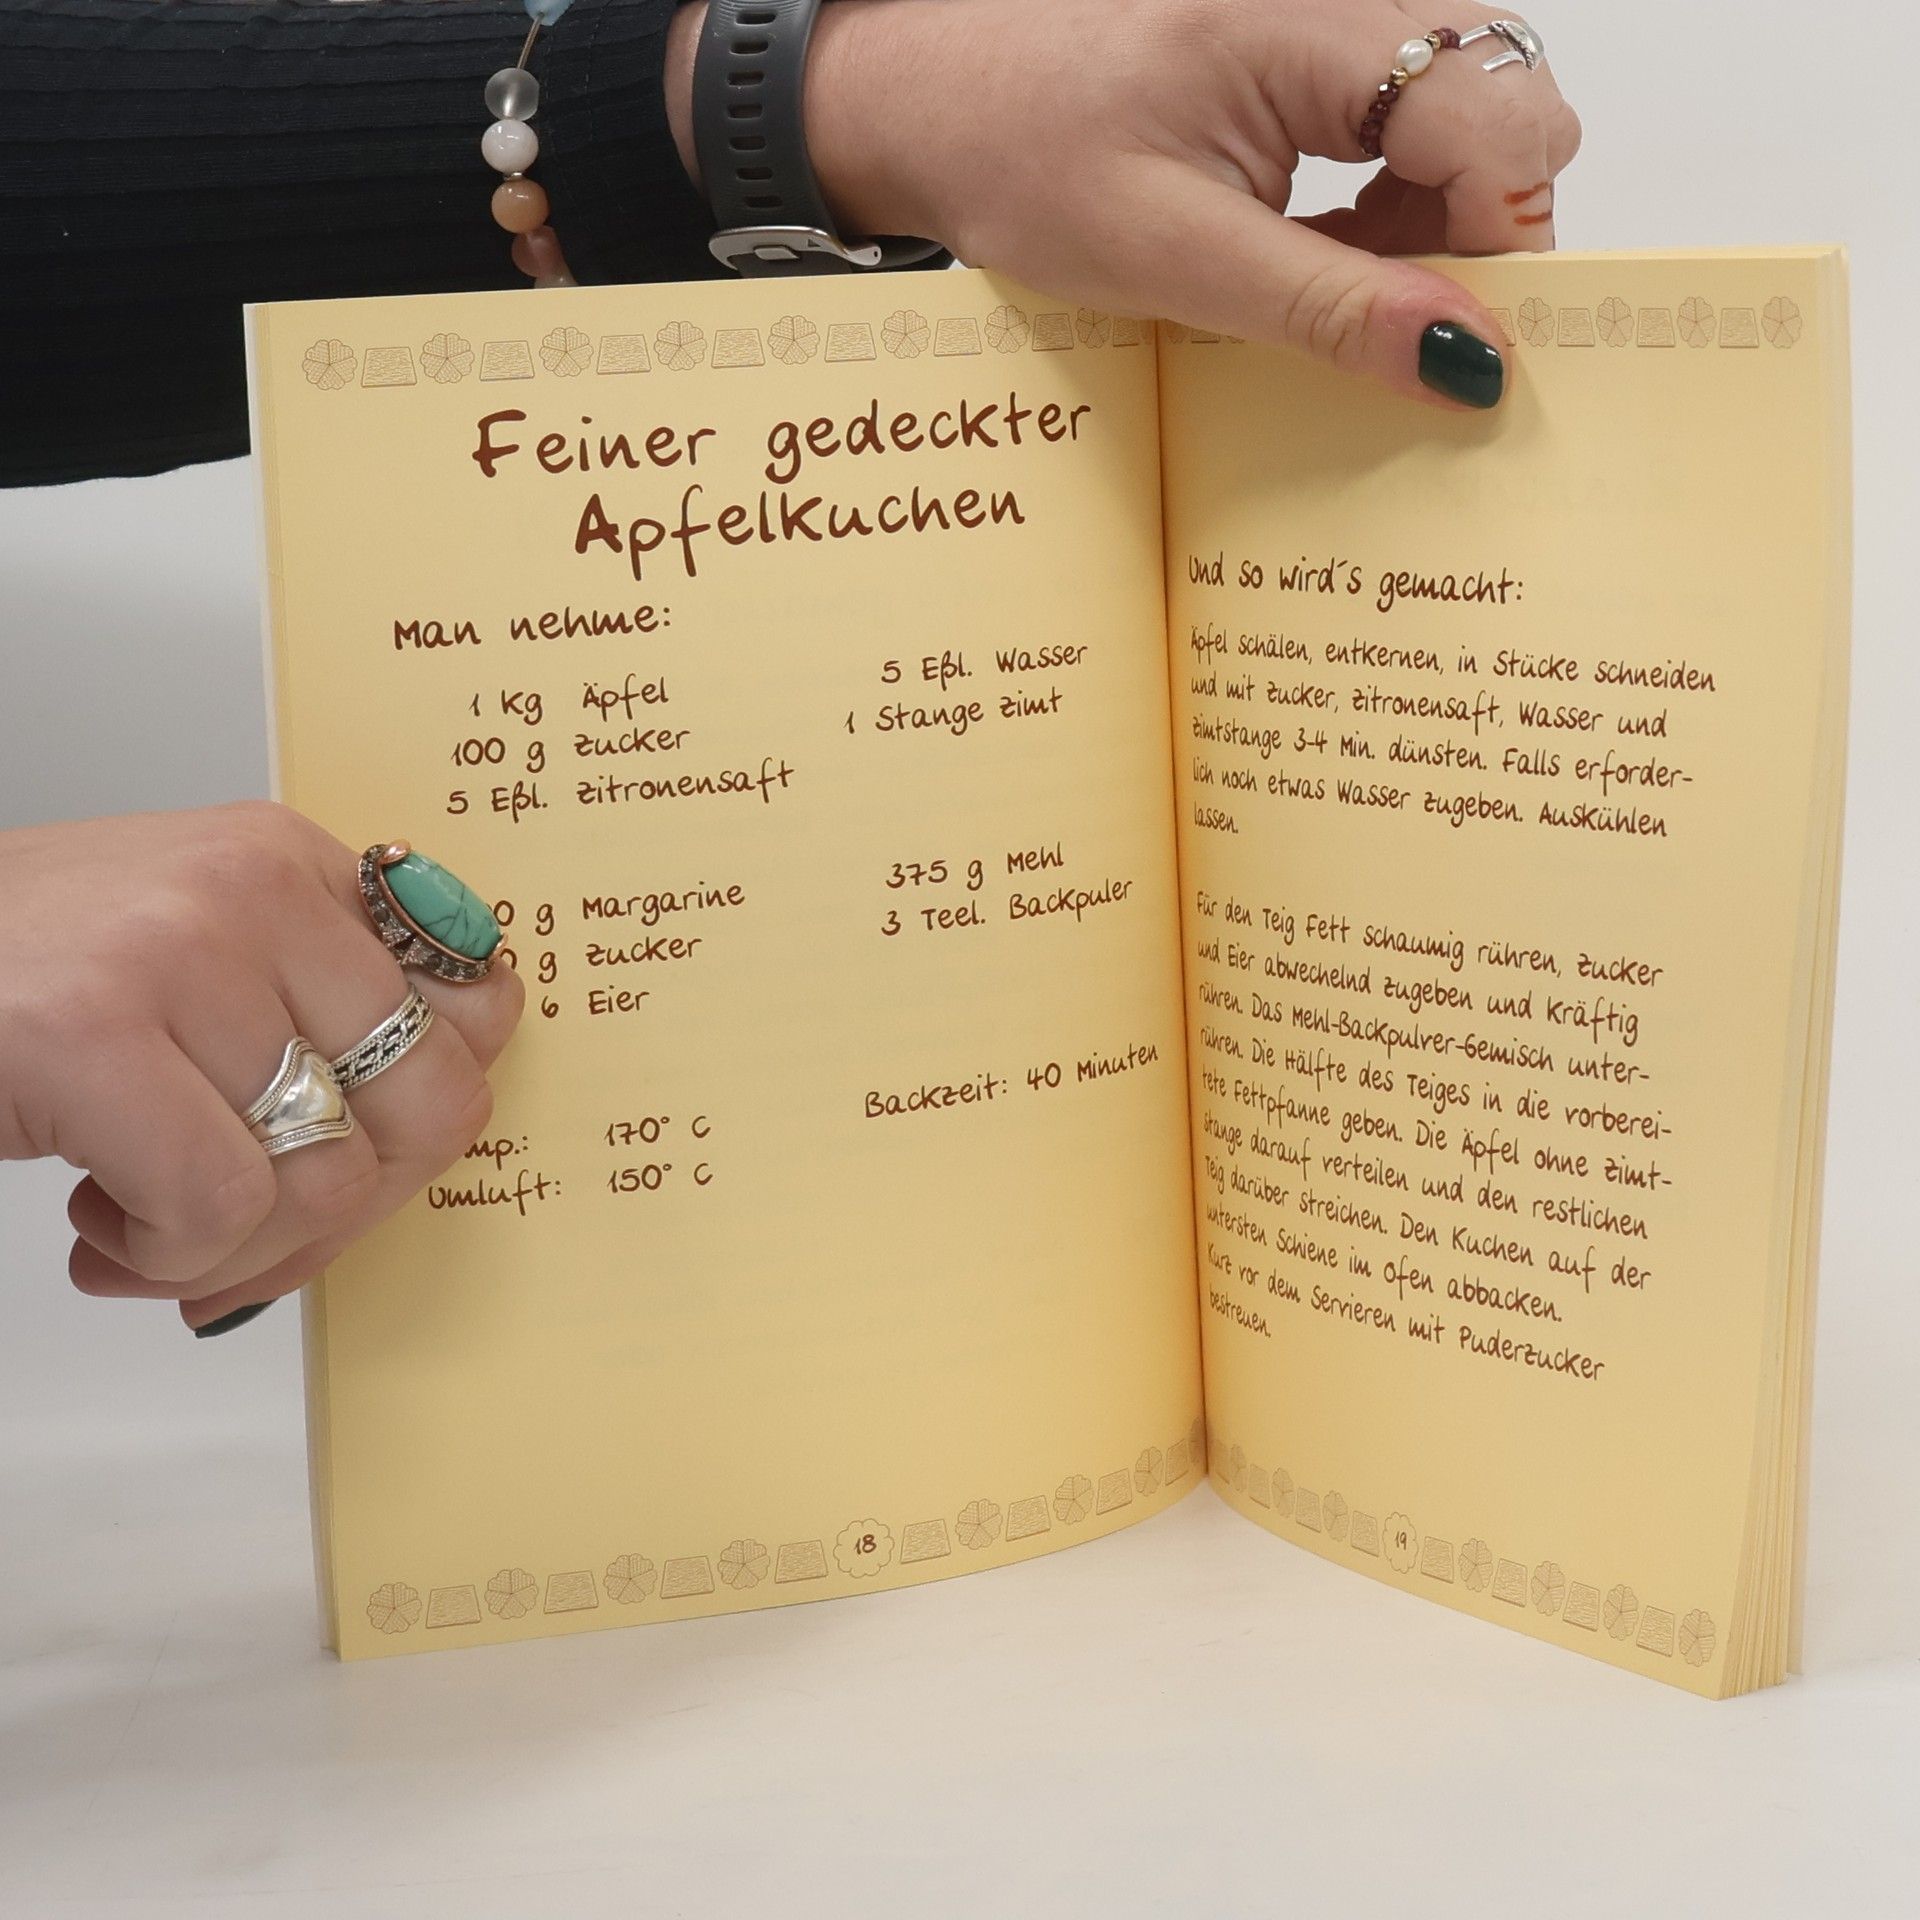 Feiner gedeckter
Apfelkuchen
Man nehme:
1 Kg Äpfel
100 g Zucker
5 Eßl. Zitronensaft
5 Eßl. Wasser
1 Stange Zimt
g Margarine
g Zucker
6 Eier
375 g Mehl
3 Teel. Backpuler
170° C
Umluft: 150° C
Backzeit: 40 Minuten
18
Und so wird´s gemacht:
Äpfel schälen, entkernen, in Stücke schneiden
und mit Zucker, Zitronensaft, Wasser und
Zimtstange 3-4 Min. dünsten. Falls erforder-
lich noch etwas Wasser zugeben. Auskühlen
lassen.
Für den Teig Fett schaumig rühren, Zucker
und Eier abwechelnd zugeben und kräftig
rühren. Das Mehl-Backpulver-Gemisch unter-
rühren. Die Hälfte des Teiges in die vorberei-
tete Fettpfanne geben. Die Äpfel ohne Zimt-
stange darauf verteilen und den restlichen
Teig darüber streichen. Den Kuchen auf der
untersten Schiene im Ofen abbacken.
Kurz vor dem Servieren mit Puderzucker
bestreuen.
19